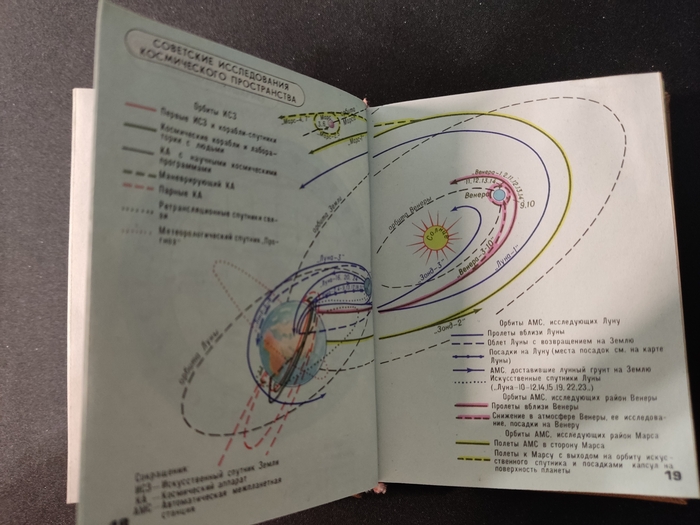 СОВЕТСКИЕ ИССЛЕДОВАНИЯ
КОСМИЧЕСКОГО ПРОСТРАНСТВА
Орбиты ИСЗ
Первые ИСЗ и корабли-спутники
Космические корабли и лабора-
тории с людьми
КА с научными космическими
программами
Маневрирующий КА
Парные КА
Ретрансляционные спутники свя-
зи
Метеорологический спутник
орбита Земли
орбита Луны
„Луна-3"
Сокращения:
ИСЗ—Искусственный спутник Земли
КА —Космический аппарат
АМС—Автоматическая межпланетная
станция
18
„Марс
орбита Венеры
Солнце
„Венера-1, 2, 11, 12, 13, 14"
11, 12, 13, 14
Венера
9,10
Венера-3-10"
„Зонд-3"
„Луна-1"
„Зонд-2"
Орбиты АМС, исследующих Луну
Пролеты вблизи Луны
Облет Луны с возвращением на Землю
Посадки на Луну (места посадок см. на карте
Луны)
АМС, доставившие лунный грунт на Землю
Искусственные спутники Луны
(„Луна-10-12,14,15,19, 22,23„)
Орбиты АМС, исследующих район Венеры
Пролеты вблизи Венеры
Снижение в атмосфере Венеры, ее исследова-
ние, посадки на Венеру
Орбиты АМС, исследующих район Марса
Полеты АМС в сторону Марса
Полеты к Марсу с выходом на орбиту искус-
ственного спутника и посадками капсул на
поверхность планеты
19